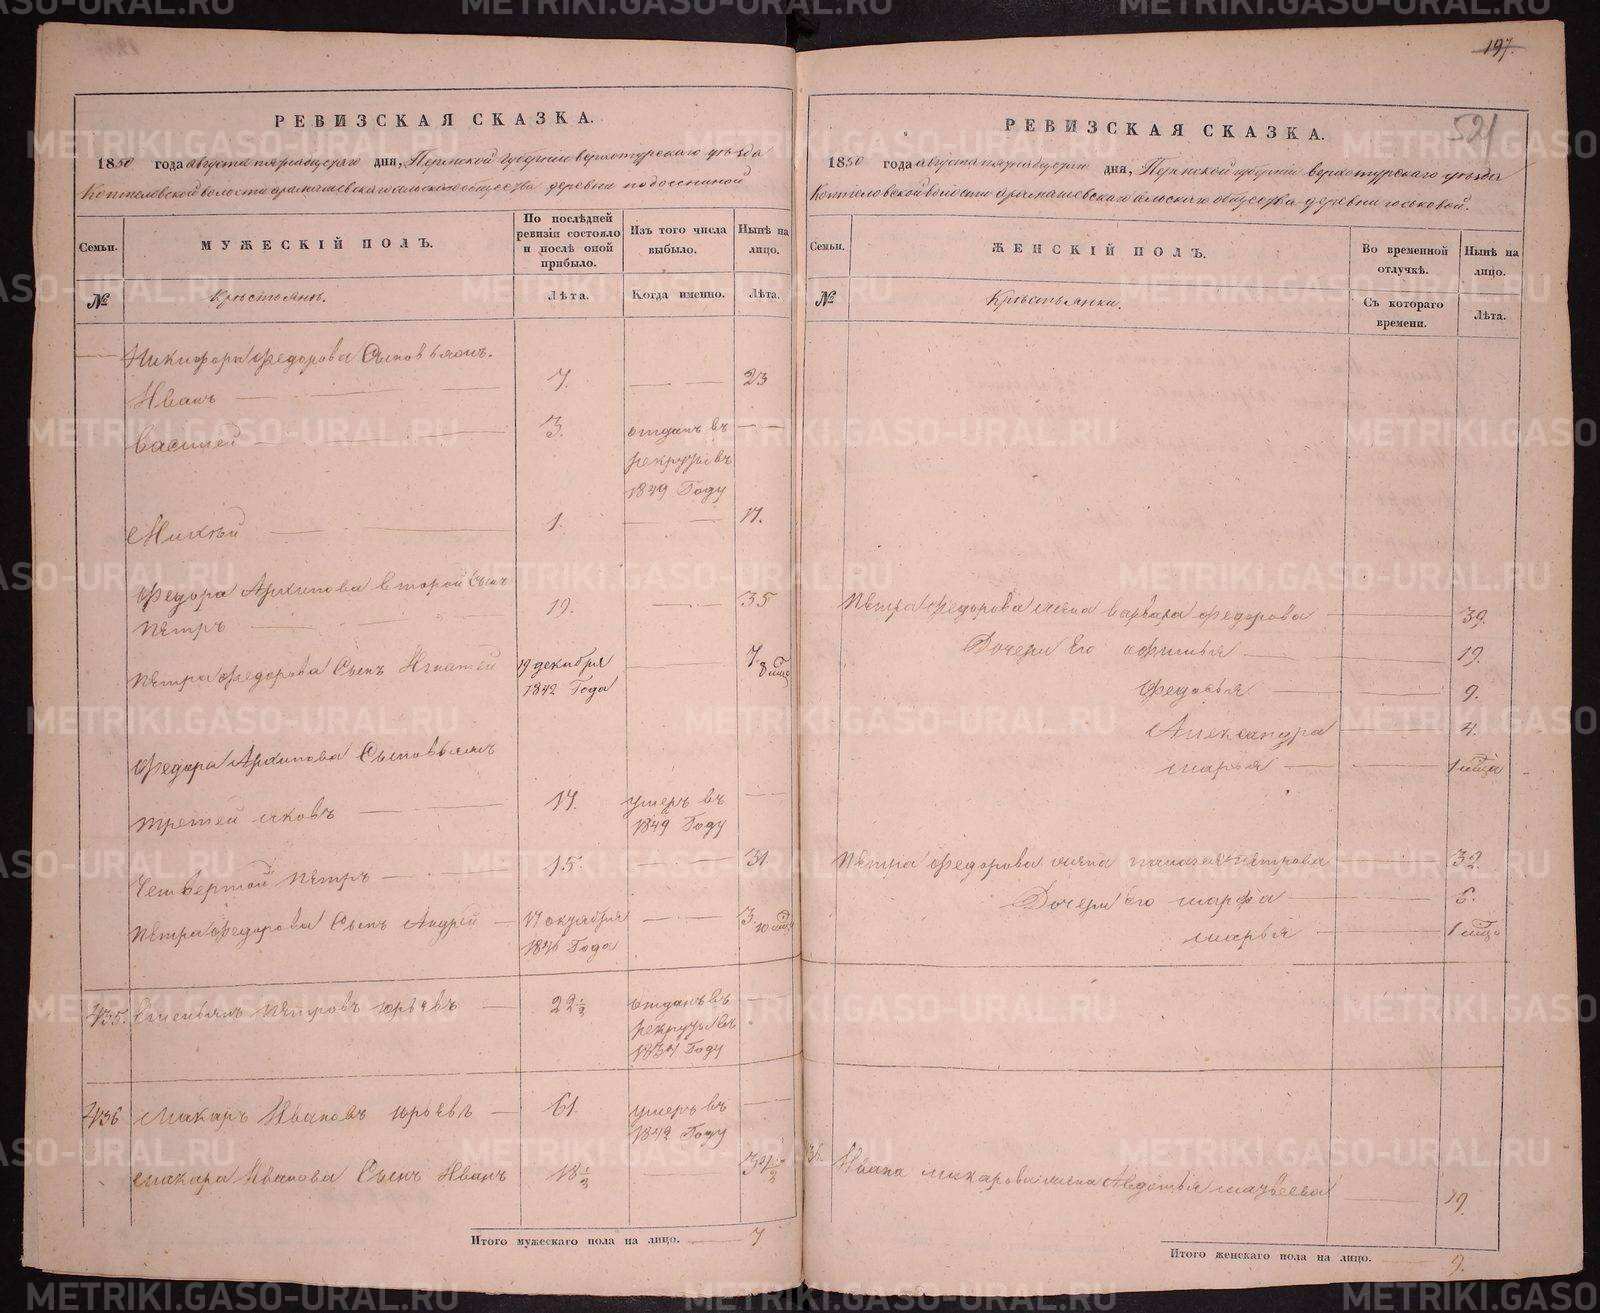 РЕВИЗСКАЯ СКАЗКА.
1850 года августа пятнадцатаго дня, Пермской губернии верхотурскаго уезда
Коптеловской волости арамашевскаго сельскаго общества деревни подосениной
Семьи. МУЖЕСКІЙ ПОЛЪ. По послѣдней ревизіи состояло и послѣ оной прибыло. Изъ того числа выбыло. Нынѣ на лицо.
№ Крестьянъ. Лѣта. Когда именно. Лѣта.
Никифора федорова Сыновьямъ.
Иванъ 7. 23
василей 3. отданъ въ
рекруты въ
1849 Году
Михѣй 1. 17.
федора Архипова второй Сынъ
петръ 19. 35
петра федорова Сынъ Игнатей 19 декабря 7.
1842 Года
федора Архипова Сыновьямъ
третей яковъ 17. умеръ въ
1849 Году
Четвертой петръ 15. 31.
петра федорова Сынъ Андрей 17 октября 3. 10 мцо
1846 Года
435. Емельянъ петровъ юрьевъ 22½ отданъ въ
рекруты въ
Году
436 макаръ Ивановъ юрьевъ 61. умеръ въ
1842 Году
макара Иванова Сынъ Иванъ 18½ 34½
Итого мужескаго пола на лицо. 7
197.
521
РЕВИЗСКАЯ СКАЗКА.
1850 года августа пятнадцатаго дня, Пермской губернии верхотурскаго уезда
Коптеловской волости арамашевскаго сельскаго общества деревни госьковой.
Семьи. ЖЕНСКІЙ ПОЛЪ. Во временной отлучкѣ. Нынѣ на лицо.
№ Крестьянки. Съ котораго времени. Лѣта.
петра федорова жена варвара федорова 39.
Дочери Его офимья 19.
федосья 9.
Александра 4.
марья 1 мцо
петра федорова жена пелагея петрова 32.
Дочери Его марфа 6.
марья 1 мцо
36. Ивана макарова жена Авдотья матвеева 19.
Итого женскаго пола на лицо. 9.
METRIKI.GASO-URAL.RU